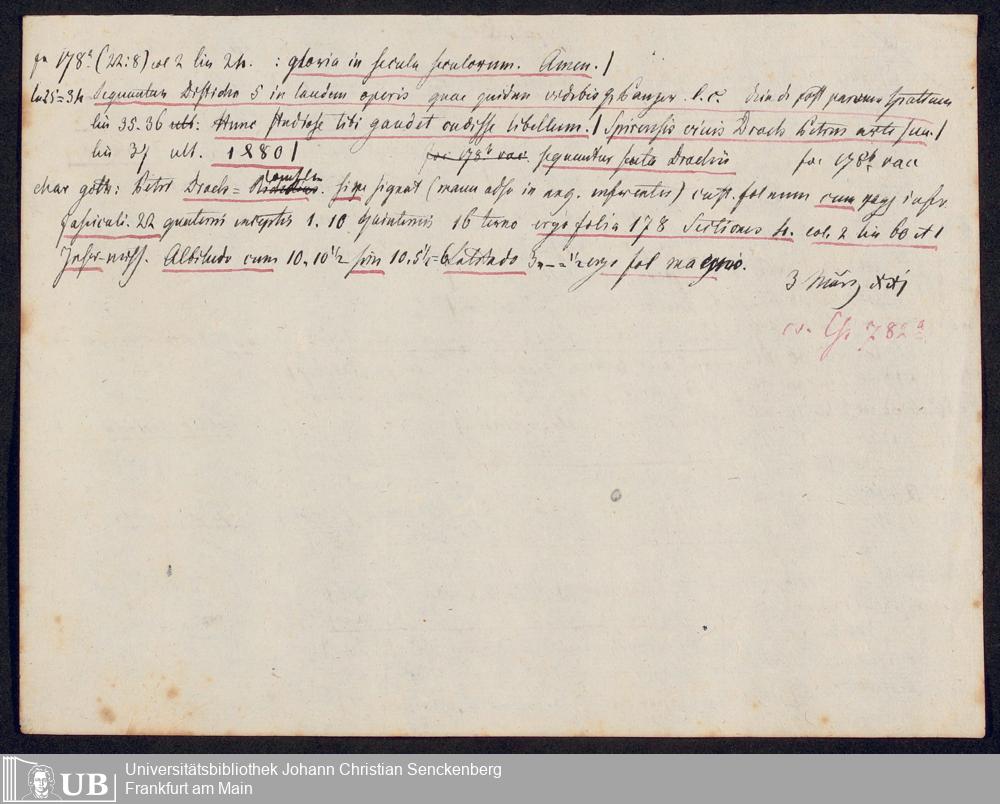 178ᵃ (22:8) col 2 lin 24. : gloria in secula seculorum. Amen. /
lin 25=34 Sequuntur Disticha 5 in laudem operis quae quidem videbis Panzer. l. c. Deinde post parvum spatium
lin 35-36 ult: Hunc studiose tibi gaudet cudisse libellum. / Spirensis civis Drach Petrus arte sua. /
lin 37 ult. 1480 / fac 178ᵇ vac. sequuntur scuta Drachii fac 178ᵇ vac
char goth: Petri Drach = sine signat (manu adso in exemplo inserentis) cust. fol num cum
fasciculi. 22 quaterni exceptis 1. 10 quinternis 16 terno ergo folia 178 Sectiones 4. col. 2 lin 60 et 1
Altitudo cum 10. 10½ sine 10. 5½ = 6 Latitudo ergo fol maximo.
3 März
782ᵃ
UB
Universitätsbibliothek Johann Christian Senckenberg
Frankfurt am Main